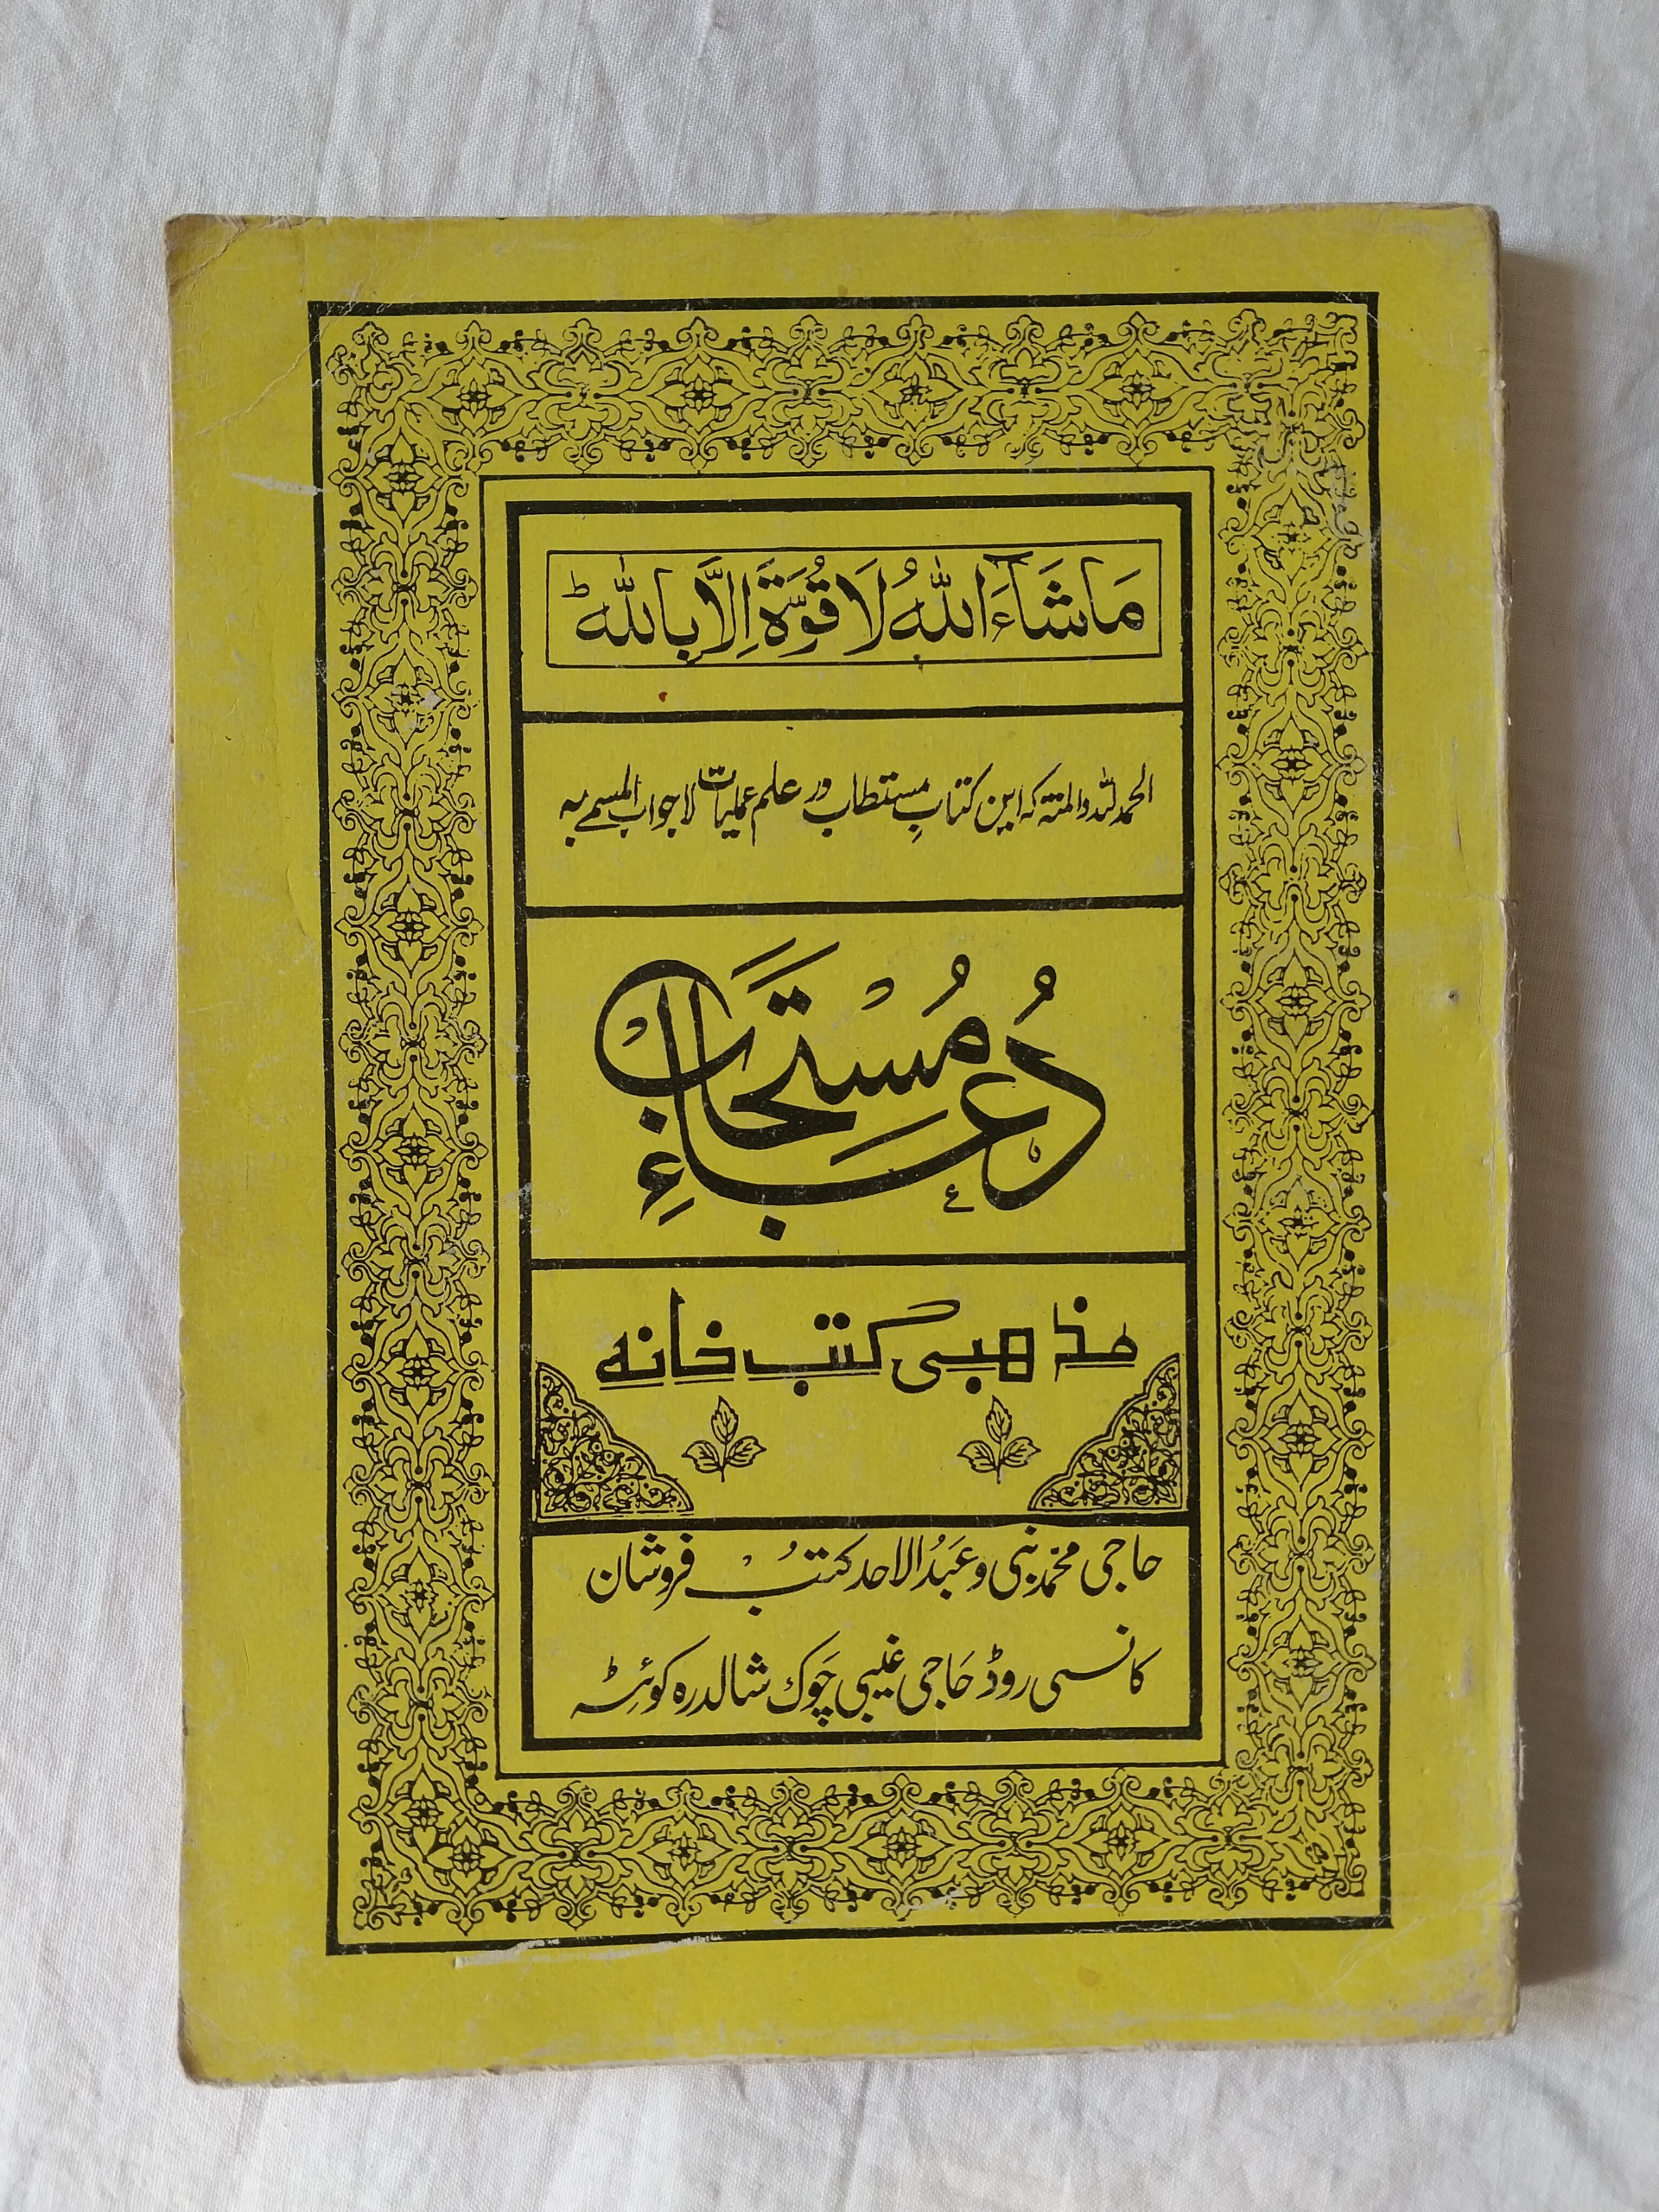 مَاشَآءَ اللّٰهُ لَا قُوَّةَ اِلَّا بِاللّٰهِ ط
الحمد لله والمنته که این کتابِ مستطاب در علم عملیات لاجواب المسمے به
دُعَاءِ مُسْتَجَاب
مذهبی کتب خانه
حاجی محمد نبی و عَبدُ الاحد کتبُ فروشان
کانسی روڈ حَاجی غیبی چَوک شالدره کوئِٹه